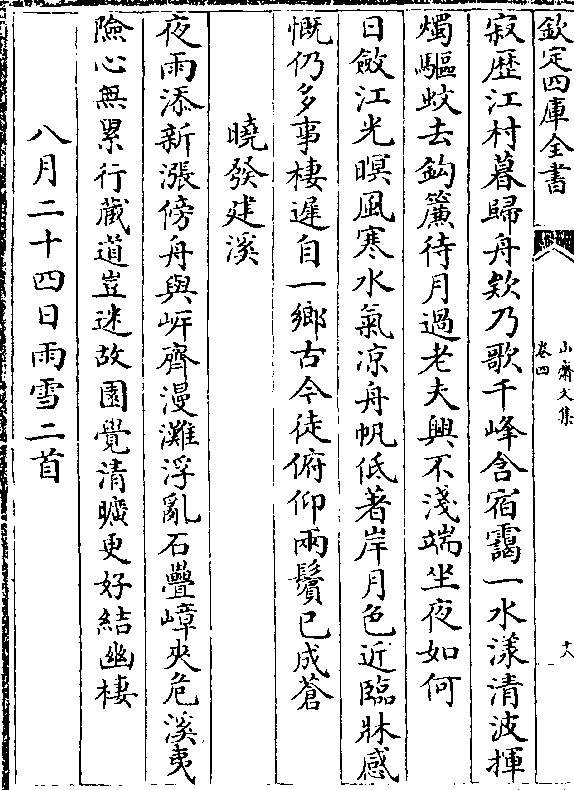 欽定四庫全書
山齋文集
卷四
十八
寂歴江村暮歸舟欸乃歌千峰含宿靄一水漾清波揮
燭驅蚊去鈎簾待月過老夫興不淺端坐夜如何
日斂江光暝風寒水氣凉舟帆低著岸月色近臨牀感
慨仍多事棲遲自一鄉古今徒俯仰兩鬢已成蒼
曉發建溪
夜雨添新漲傍舟與岍齊漫灘浮亂石疊嶂夾危溪夷
險心無累行藏道豈迷故園覺清曠更好結幽棲
八月二十四日雨雪二首